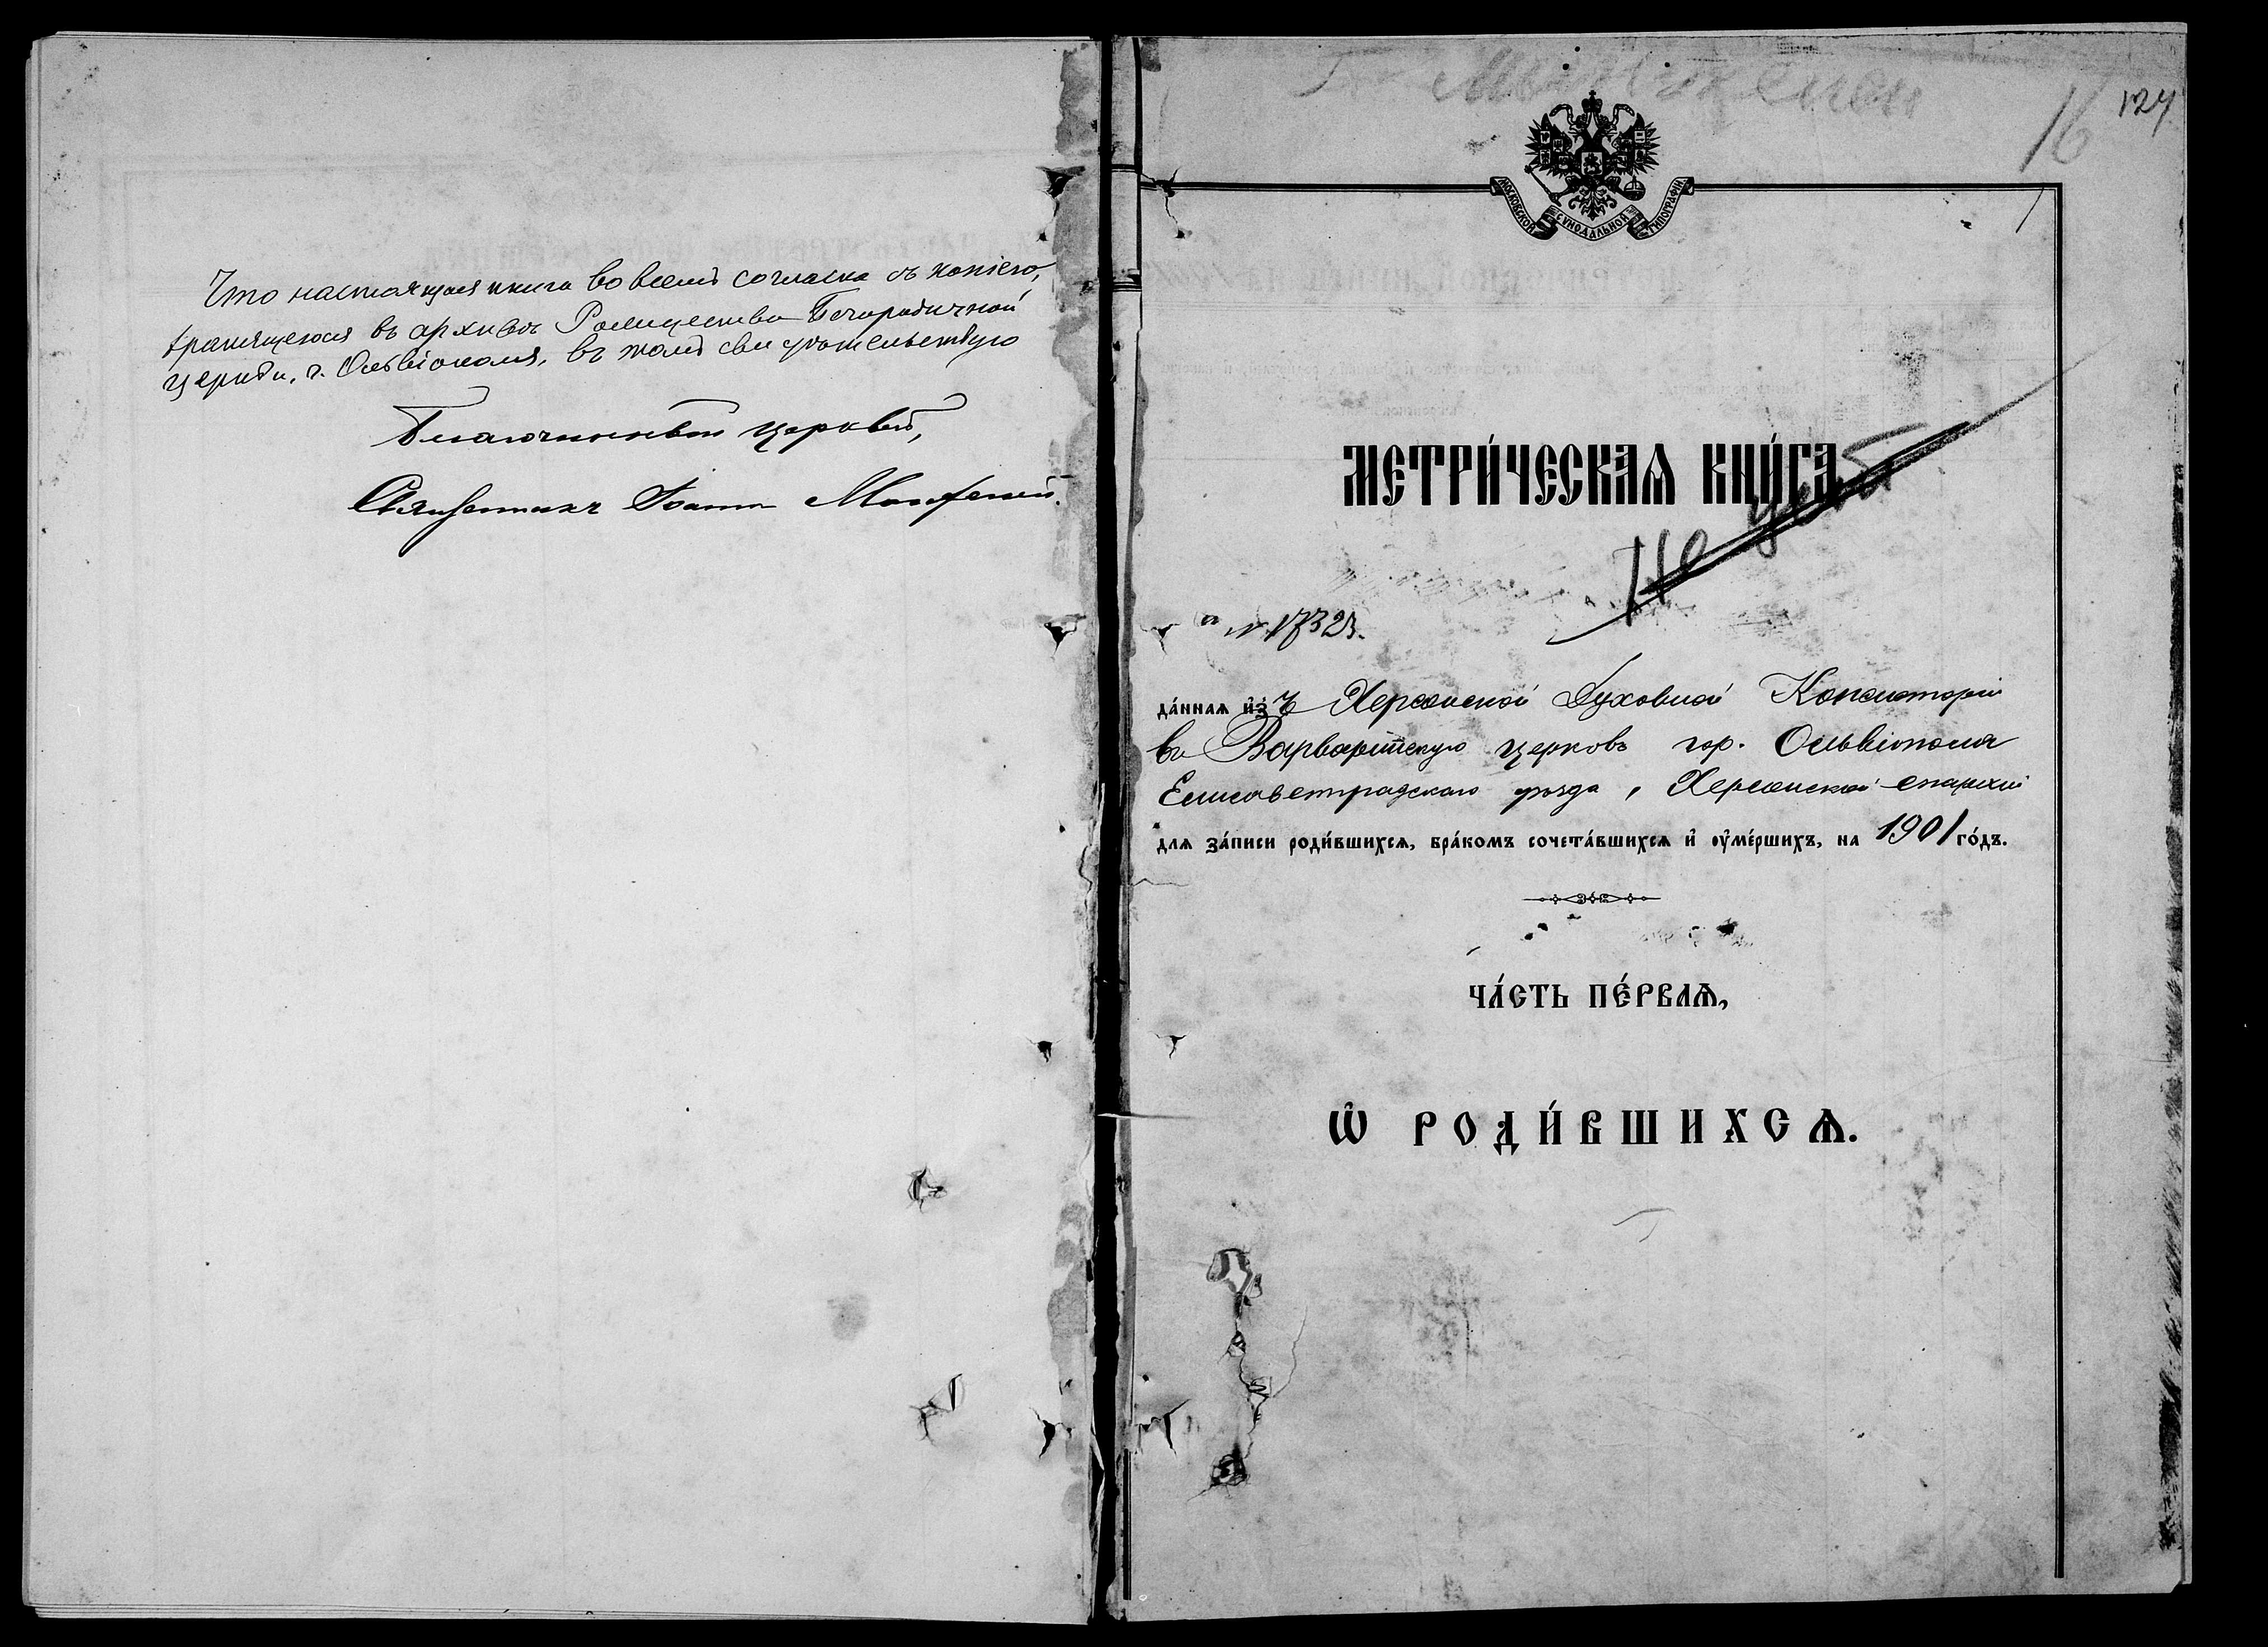 Что настоящая книга во всемъ согласна съ копіею,
хранящеюся въ архивѣ Рождества Богородичной
церкви, г. Ольвіополя, въ томъ свидѣтельствую
Благочинный церквей,
Священникъ Іоаннъ
16
127
МОСКОВСКОЙ СѴНОДАЛЬНОЙ ТИПОГРАФІИ
МЕТРИ́ЧЕСКАѦ КНИ́ГА
Не
№ 17323.
да́ннаѧ и҆зъ Херсонской Духовной Консисторіи
въ Варваринскую церковь гор. Ольвіополя
Елисаветградскаго уѣзда, Херсонской епархіи
длѧ за́писи роди́вшихсѧ, бра́комъ сочета́вшихсѧ и҆ ᲂу҆ме́ршихъ, на 1901 го́дъ.
ЧА́СТЬ ПЕ́РВАѦ,
Ѽ РОДИ́ВШИХСѦ.